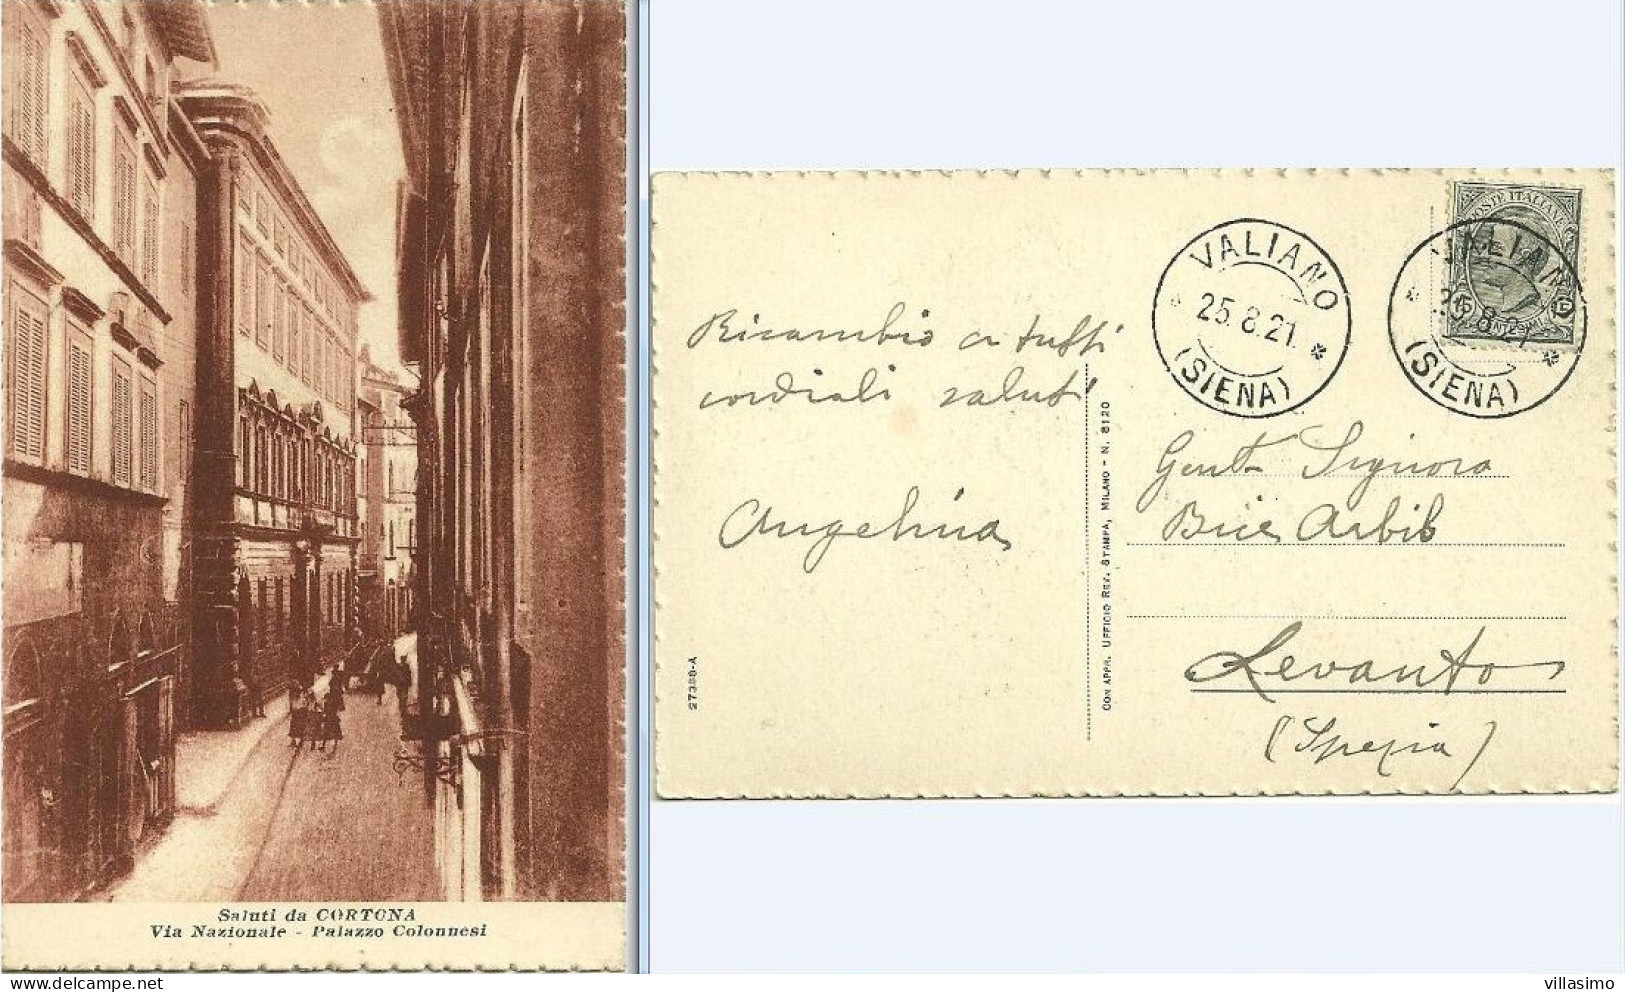 Saluti da CORTONA
Via Nazionale - Palazzo Colonnesi
Ricambio a tutti
cordiali saluti
Angelina
27386-A
CON APPR. UFFICIO REV. STAMPA, MILANO - N. 8120
VALIANO
25.8.21.
(SIENA)
POSTE ITALIANE
VALIANO
25.8.21
(SIENA)
Gent. Signora
Bice Arbib
Levanto
(Spezia)
villasimo